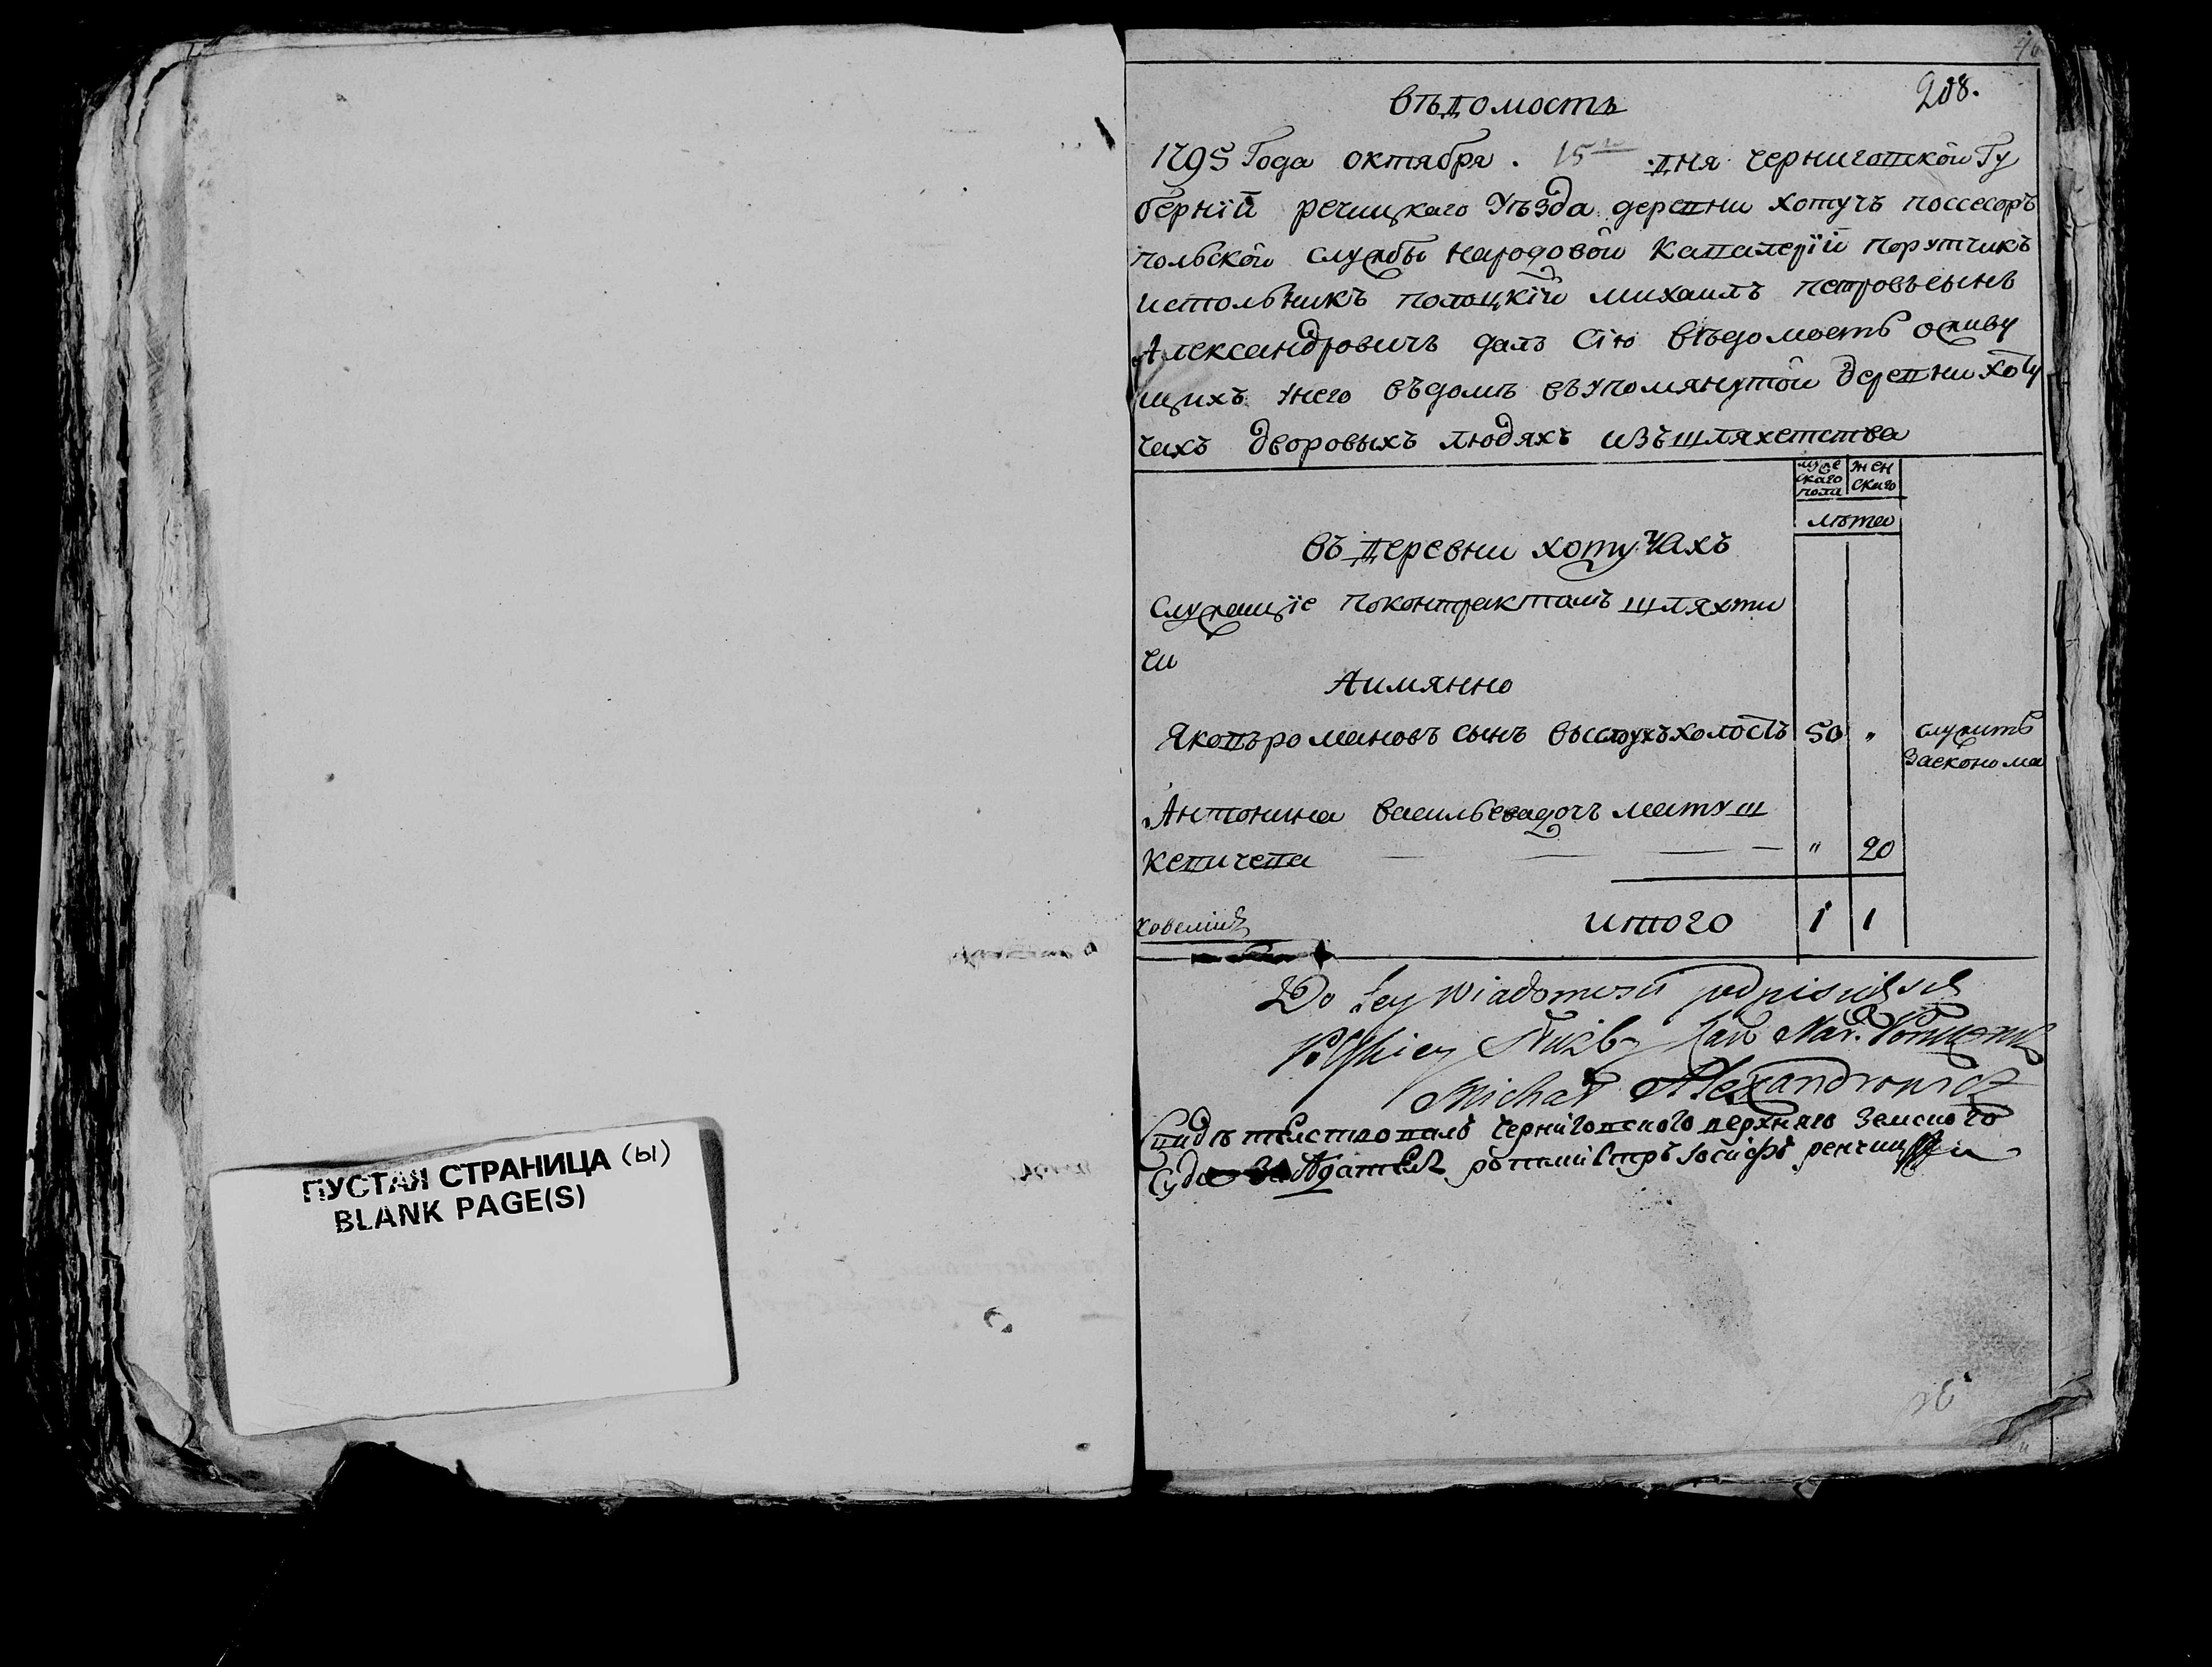 ПУСТАЯ СТРАНИЦА (ы)
BLANK PAGE(S)
208.
вѣдомость
1795 Года октября . 15 дня черниговской Гу
берній речицкаго Уѣзда деревни хотучъ поссесоръ
польской службы народовой Кавалеріи порутчикъ
истольникъ полоцкій михаилъ петровъ сынъ
Александровичъ далъ Сію вѣдомость оживу
щихъ Унего въдомѣ въупомянутой деревни хоту
чахъ дворовыхъ людяхъ изъшляхетства
муже
скаго
пола
жен
скаго
лѣта
въ деревни хотучахъ
Служащіе поконтрактамъ шляхти
чи
Аимянно
Яковъ романовъ сынъ холостъ 50 " служитъ
заеконома
Антонина васильевадочь матуш
кевичева " 20
итого 1 1
Do tey Wiadomosci podpisuię się
Polskiey Służby Kaw Nar. Porucznik
Michał Alexandrowicz
Свидѣтельствовалъ черниговского верхняго земского
Суда ротмистръ Іосифъ